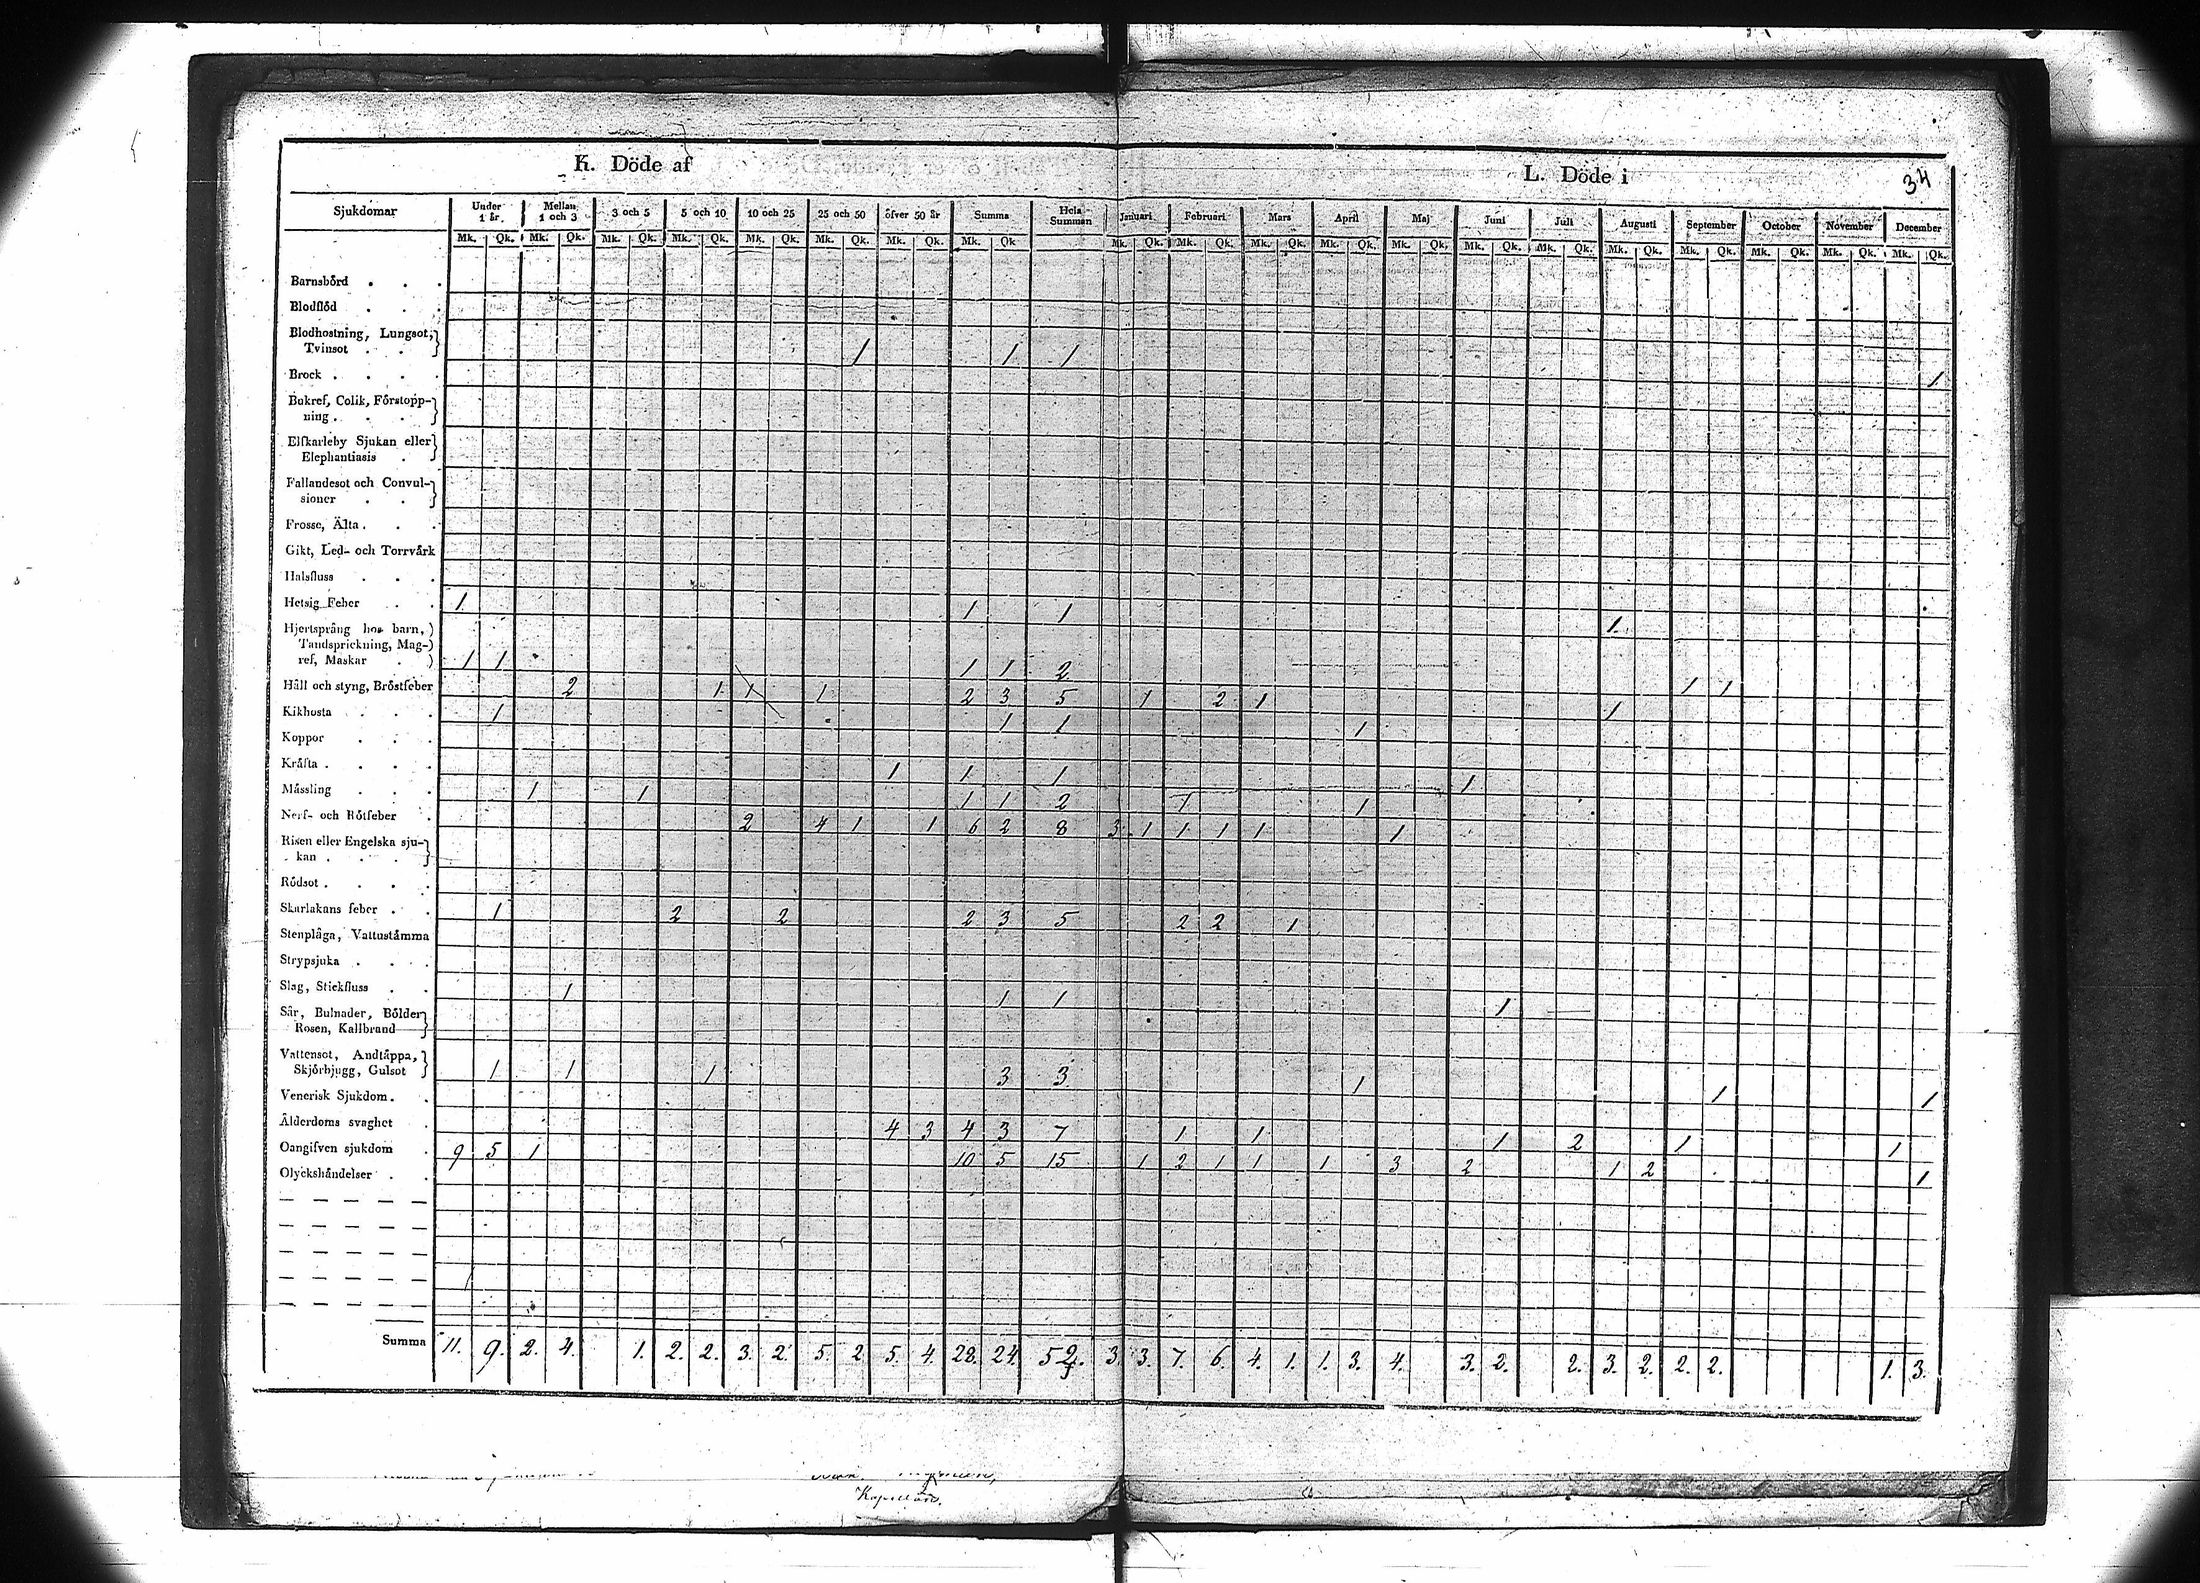 K. Döde af
L. Döde i
34
Sjukdomar Under 1 år. Mellan 1 och 3 3 och 5 5 och 10 10 och 25 25 och 50 öfver 50 år Summa Hela Summan Januari Februari Mars April Maj Juni Juli Augusti September October November December
Mk. Qk. Mk. Qk. Mk. Qk. Mk. Qk. Mk. Qk. Mk. Qk. Mk. Qk. Mk. Qk Mk. Qk. Mk. Qk. Mk. Qk. Mk. Qk. Mk. Qk. Mk. Qk. Mk. Qk. Mk. Qk. Mk. Qk. Mk. Qk. Mk. Qk. Mk. Qk.
Barnsbörd . . .
Blodflöd . . .
Blodhostning, Lungsot,
Tvinsot . . 1 1 1 1
Brock . . . .
Bukref, Colik, Förstopp-
ning . . .
Elfkarleby Sjukan eller
Elephantiasis .
Fallandesot och Convul-
sioner . .
Frosse, Älta . . .
Gikt, Led- och Torrvärk
Halsfluss . . .
Hetsig Feber . . 1 1 1 1
Hjertsprång hos barn,
Tandsprickning, Mag-
ref, Maskar . 1 1 1 1 2 1 1
Håll och styng, Bröstfeber 2 1 1 1 2 3 5 1 2 1 1
Kikhosta . . . 1 1 1 1
Koppor . . .
Kräfta . . . . 1 1 1 1
Mässling . . . 1 1 1 1 2 1 1
Nerf- och Rötfeber . 2 4 1 1 6 2 8 3 1 1 1 1 1
Risen eller Engelska sju-
kan . . .
Rödsot . . . .
Skarlakans feber . . 1 2 2 2 3 5 2 2 1
Stenplåga, Vattustämma
Strypsjuka . . .
Slag, Stickfluss . . 1 1 1 1
Sår, Bulnader, Bölder
Rosen, Kallbrand
Vattensot, Andtäppa,
Skjörbjugg, Gulsot 1 1 1 3 3 1 1 1
Venerisk Sjukdom . .
Ålderdoms svaghet . 4 3 4 3 7 1 1 1 2 1 1
Oangifven sjukdom . 9 5 1 10 5 15 1 2 1 1 1 3 2 1 2 1
Olyckshändelser . .
Summa 11. 9. 2. 4. 1. 2. 2. 3. 2. 5. 2 5. 4. 28. 24. 52. 3. 3. 7. 6. 4. 1. 1. 3. 4. 3. 2. 2. 3. 2. 2. 2. 1. 3.